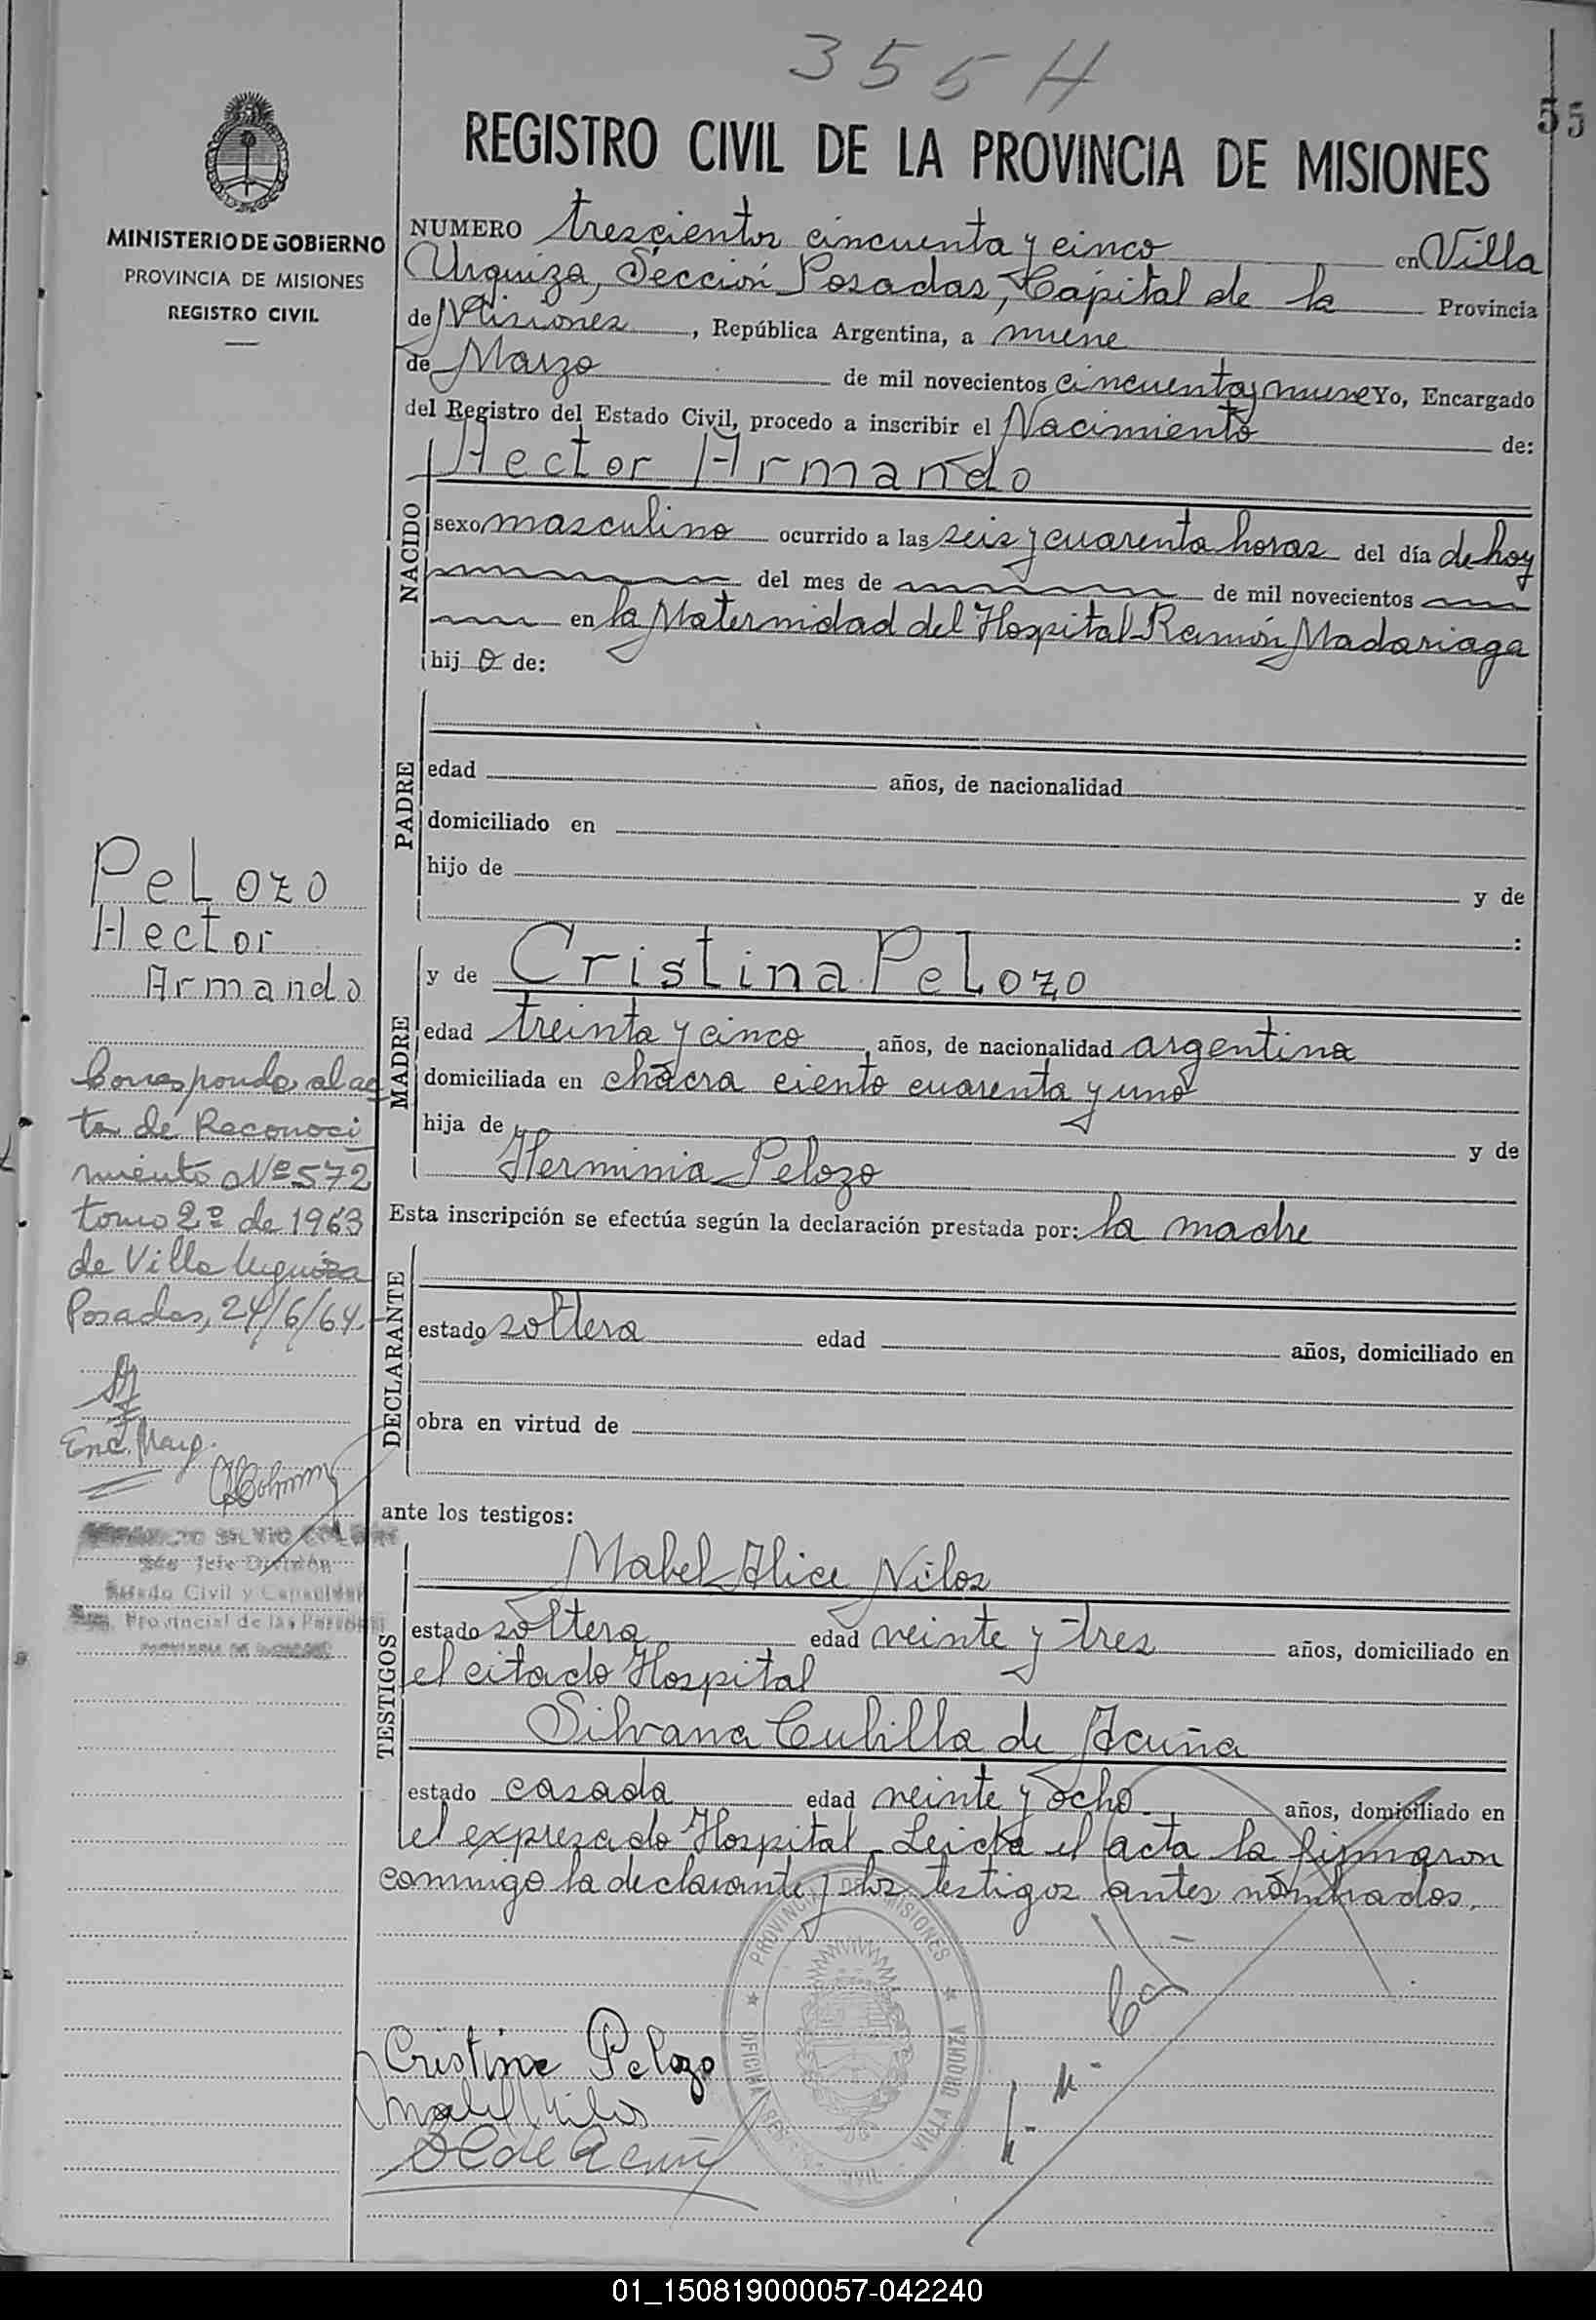 355 H
55
REGISTRO CIVIL DE LA PROVINCIA DE MISIONES
MINISTERIO DE GOBIERNO
PROVINCIA DE MISIONES
REGISTRO CIVIL
NUMERO trescientos cincuenta y cinco en Villa
Urquiza, Sección Posadas, Capital de la Provincia
de Misiones, República Argentina, a nueve
de Marzo de mil novecientos cincuenta y nueve Yo, Encargado
del Registro del Estado Civil, procedo a inscribir el Nacimiento de:
Hector Armando
NACIDO
sexo masculino ocurrido a las seis y cuarenta horas del día de hoy
del mes de de mil novecientos
en la Maternidad del Hospital Ramón Madariaga
hij o de:
PADRE
edad años, de nacionalidad
domiciliado en
hijo de y de
:
Pelozo
Hector
Armando
Corresponde al ac
ta de Reconoci
miento Nº 572
tomo 2º de 1963
de Villa Urquiza
Posadas, 24/6/64.
Enc. Marg.
MADRE
y de Cristina Pelozo
edad treinta y cinco, años, de nacionalidad argentina
domiciliada en chacra ciento cuarenta y uno
hija de y de
Herminia Pelozo
Esta inscripción se efectúa según la declaración prestada por: la madre
DECLARANTE
estado soltera edad años, domiciliado en
obra en virtud de
SILVIO
Jefe División
Estado Civil y Capacidad
Provincial de las Personas
ante los testigos:
TESTIGOS
Mabel Alice Nilos
estado soltera edad veinte y tres años, domiciliado en
el citado Hospital
Silvana Cubilla de Acuña
estado casada edad veinte y ocho años, domiciliado en
el expresado Hospital. Leida el acta la firmaron
conmigo la declarante y los testigos antes nombrados.
PROVINCIA DE MISIONES
OFICINA REG. CIVIL VILLA URQUIZA
Cristina Pelozo
Mabel Nilos
S C de Acuña
01_150819000057-042240